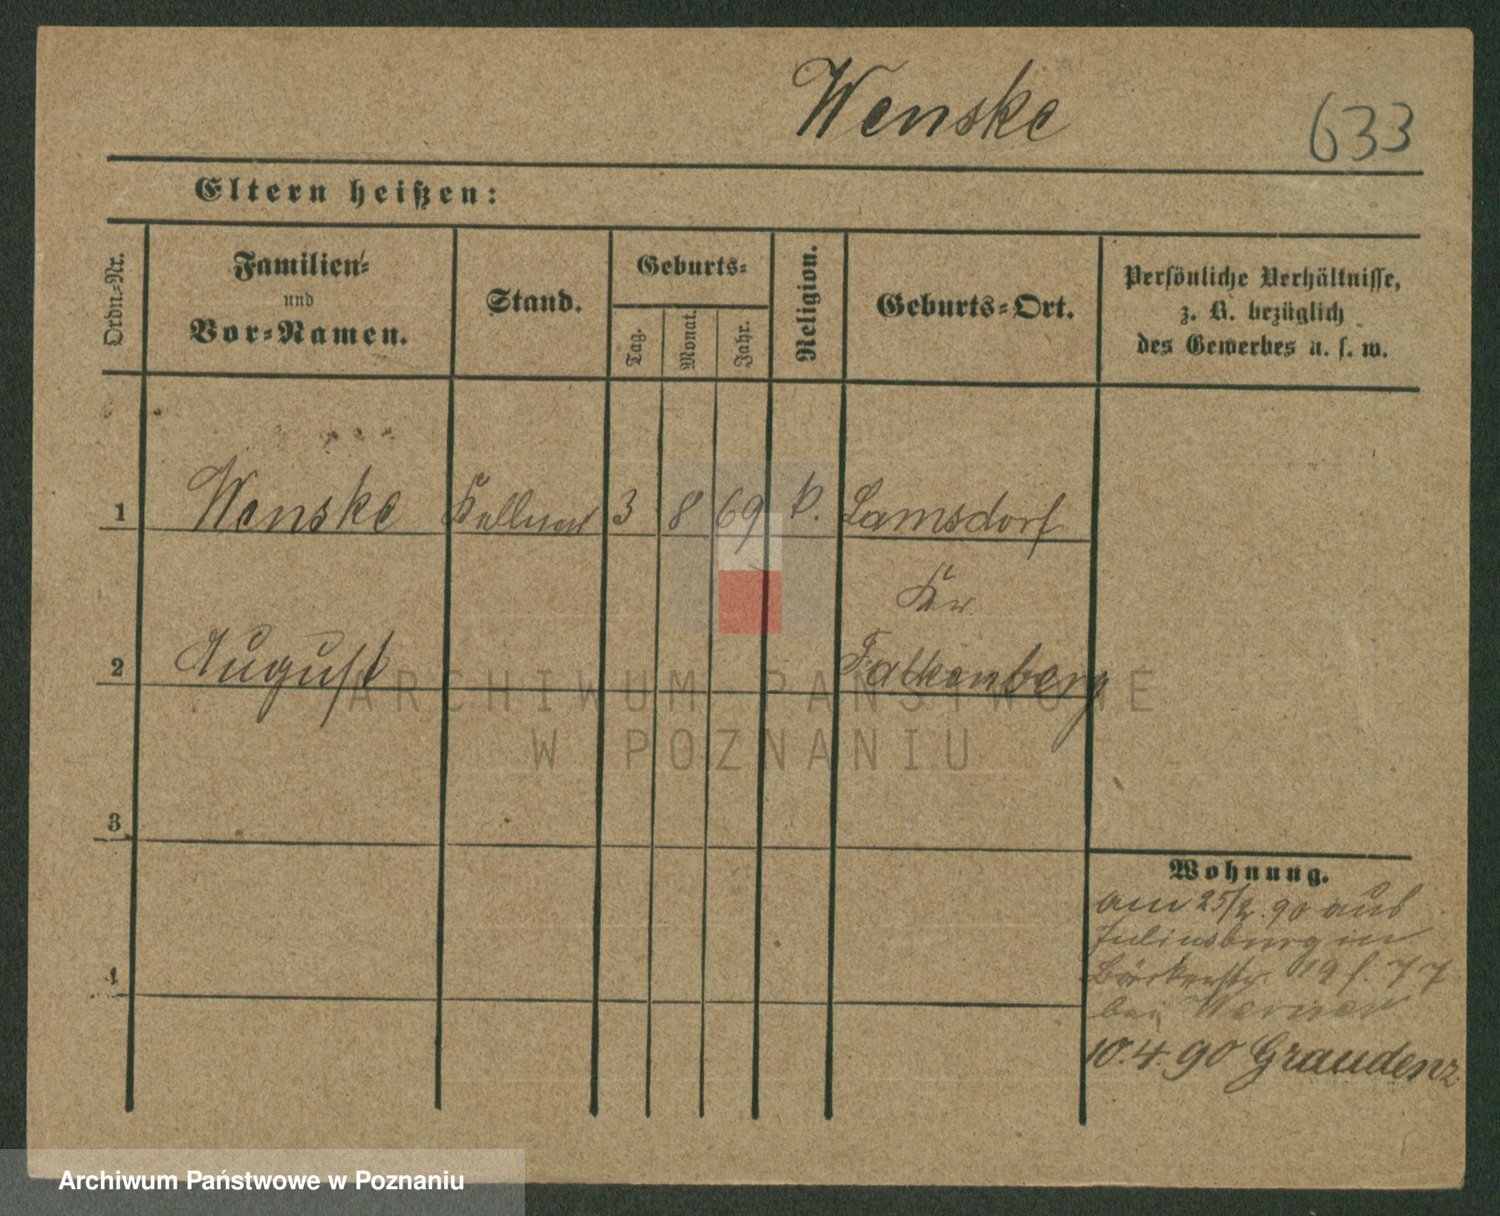 Wenske
633
Eltern heißen:
Ordn.-Nr.
Familien-
und
Vor-Namen.
Stand.
Geburts-
Tag.
Monat.
Jahr.
Religion.
Geburts-Ort.
Persönliche Verhältnisse,
z. B. bezüglich
des Gewerbes u. s. w.
1 Wenske Kellner 3 8 69 k. Lamsdorf
Kr.
2 August Falkenberg
3
4
Wohnung.
am 25/2. 90 aus
Juliusburg in
19 f. 77
bei Werner
10.4.90 Graudenz
ARCHIWUM PAŃSTWOWE
W POZNANIU
Archiwum Państwowe w Poznaniu